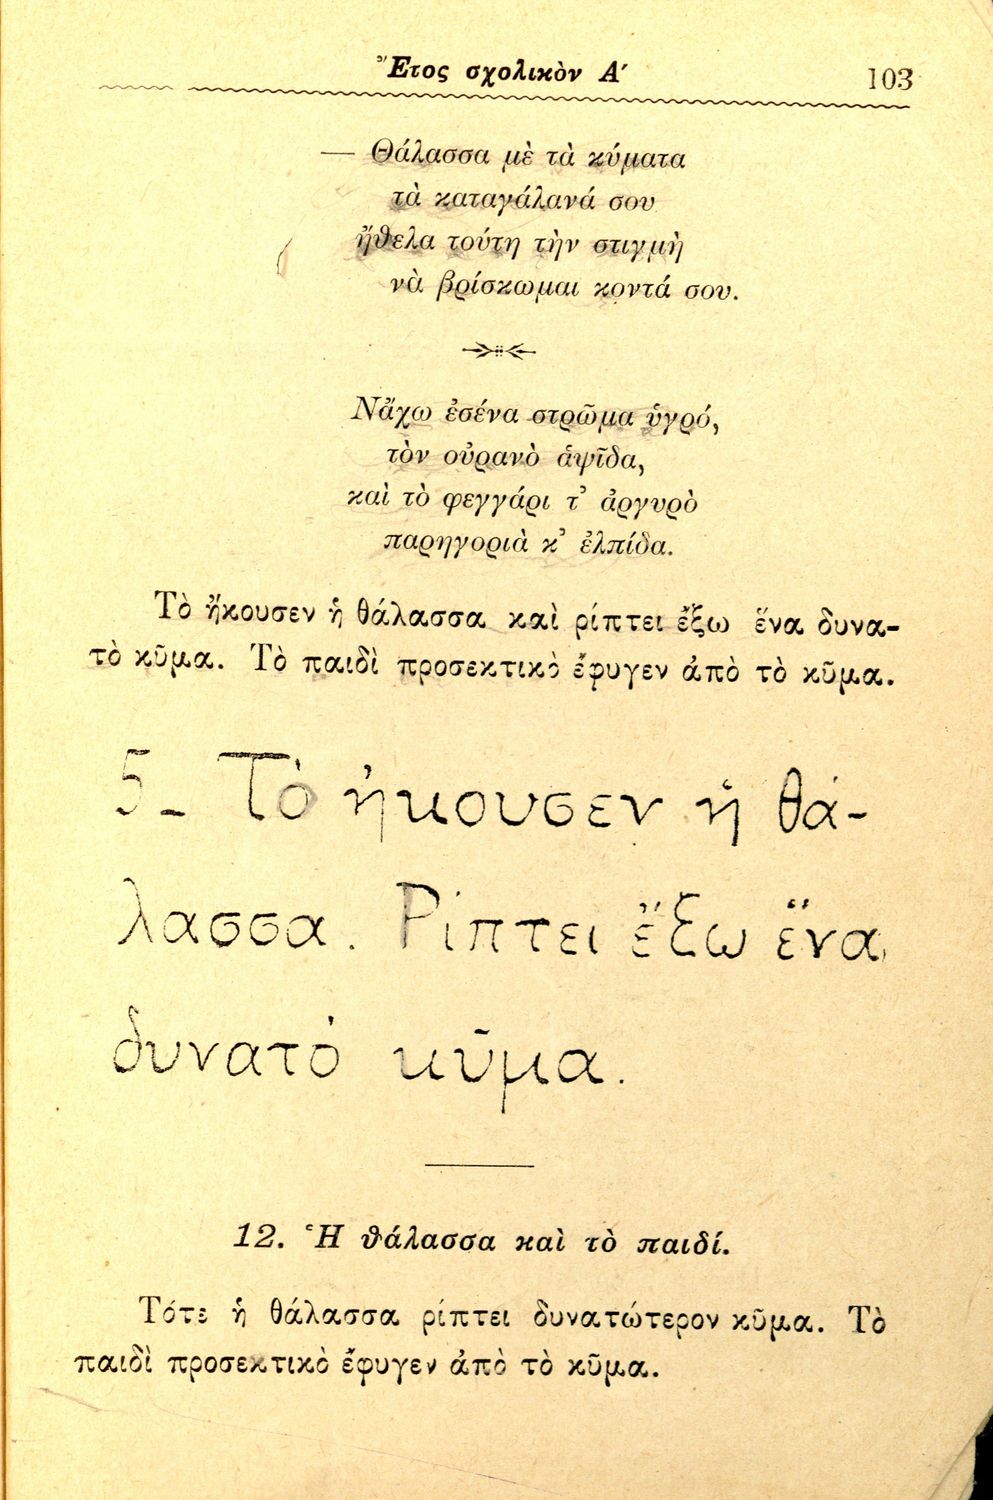 Ἔτος σχολικὸν Α′
103
— Θάλασσα μὲ τὰ κύματα
τὰ καταγάλανά σου
ἤθελα τούτη τὴν στιγμὴ
νὰ βρίσκωμαι κοντά σου.
Νἄχω ἐσένα στρῶμα ὑγρό,
τὸν οὐρανὸ ἁψῖδα,
καὶ τὸ φεγγάρι τ᾽ ἀργυρὸ
παρηγοριὰ κ᾽ ἐλπίδα.
Τὸ ἤκουσεν ἡ θάλασσα καὶ ρίπτει ἔξω ἕνα δυνα-
τὸ κῦμα. Τὸ παιδὶ προσεκτικὸ ἔφυγεν ἀπὸ τὸ κῦμα.
5– Τὸ ἠκουσεν ἡ θά-
λασσα. Ρίπτει ἔξω ἕνα
δυνατὸ κῦμα.
12. Ἡ θάλασσα καὶ τὸ παιδί.
Τότε ἡ θάλασσα ρίπτει δυνατώτερον κῦμα. Τὸ
παιδὶ προσεκτικὸ ἔφυγεν ἀπὸ τὸ κῦμα.